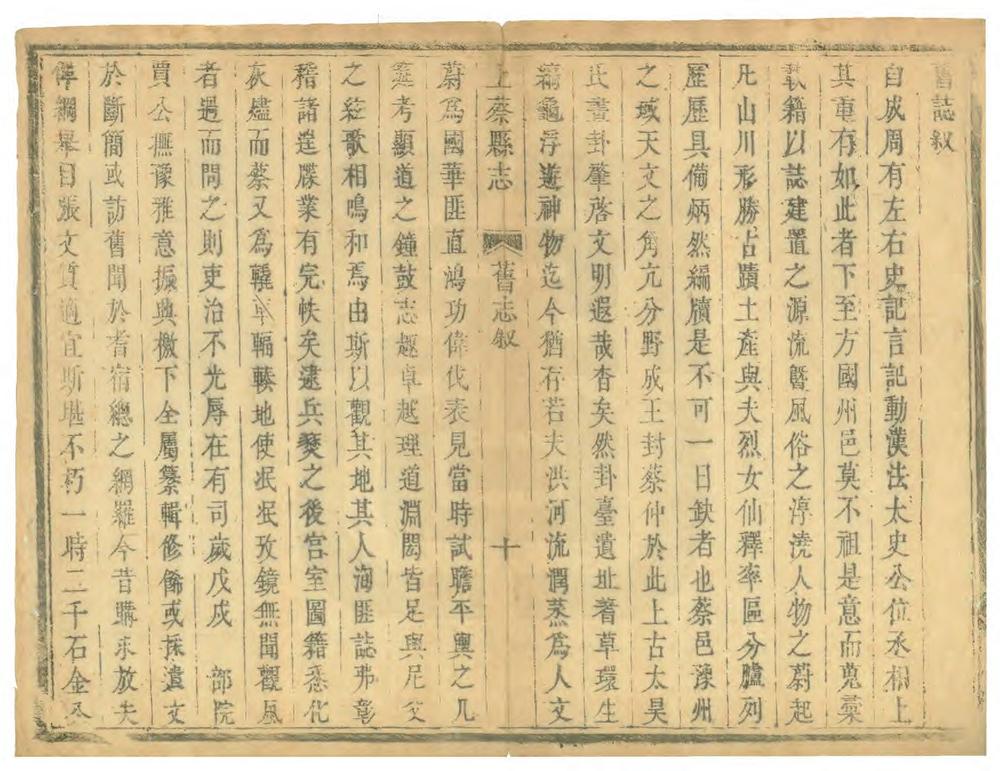 舊誌叙
自成周有左右史記言記動漢法太史公位丞相上
其重有如此者下至方國州邑莫不祖是意而蒐彙
載籍以誌建置之源流曁風俗之淳澆人物之蔚起
凡山川形勝古蹟土產與夫烈女仙釋率區分臚列
歷歷具備炳然編牘是不可一日缺者也蔡邑豫州
之域天文之角亢分野成王封蔡仲於此上古太昊
氏畫卦肇啓文明遐哉杳矣然卦臺遺址蓍草環生
龜浮遊神物迄今猶存若夫洪河流潤蒸爲人文
上蔡縣志 舊志叙 十
蔚爲國華匪直鴻功偉伐表見當時試瞻平輿之几
筵考顯道之鐘鼓志趣卓越理道淵閎皆足與尼父
之絃歌相鳴和焉由斯以觀其地其人洵匪誌弗彰
稽諸逆牒業有完帙矣逮兵燹之後宫室圖籍悉化
灰燼而蔡又爲轅車輻輳地使泯泯攷鏡無聞觀風
者過而問之則吏治不光辱在有司歲戊戌 部院
賈公撫豫雅意振興檄下全屬纂輯修餙或採遺文
於斷簡或訪舊聞於耆宿總之網羅今昔購求放失
俾綱舉目張文質適宜斯堪不朽一時二千石金公